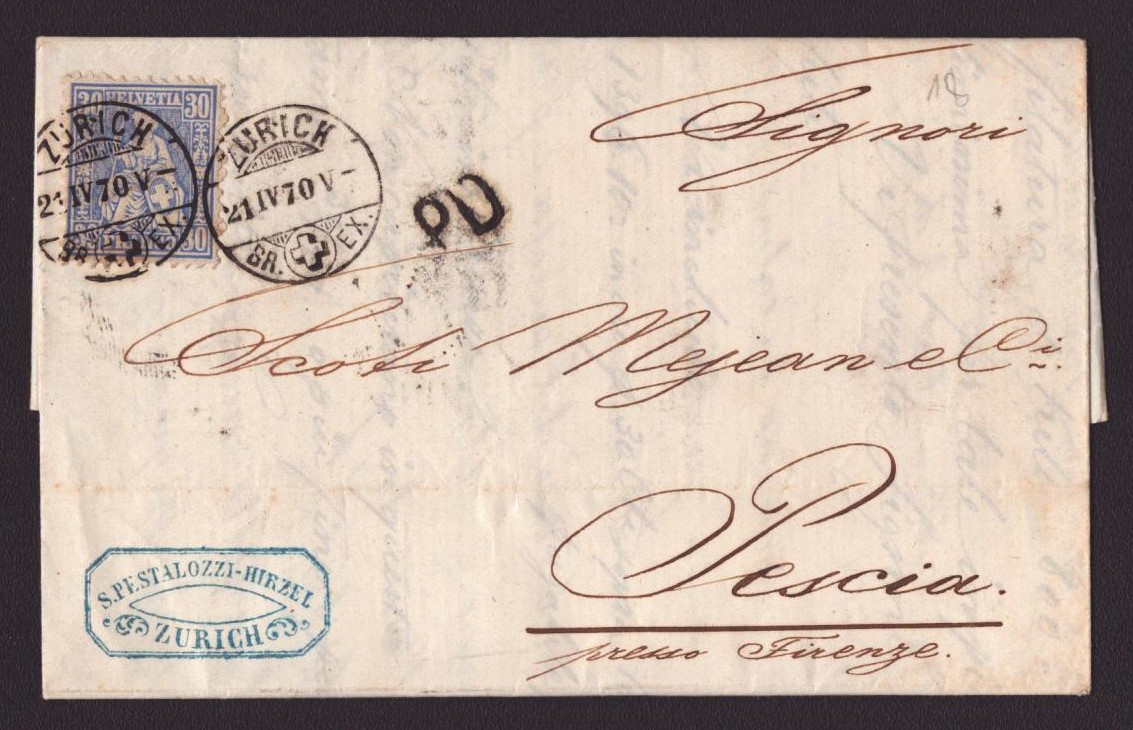 30 HELVETIA 30
30
ZÜRICH
21 IV 70 V-
BR. EX.
ZÜRICH
21 IV 70 V-
BR. EX.
PD
18
Signori
Scoti Mejean e Ci.
Pescia.
presso Firenze.
S. PESTALOZZI-HIRZEL
ZURICH